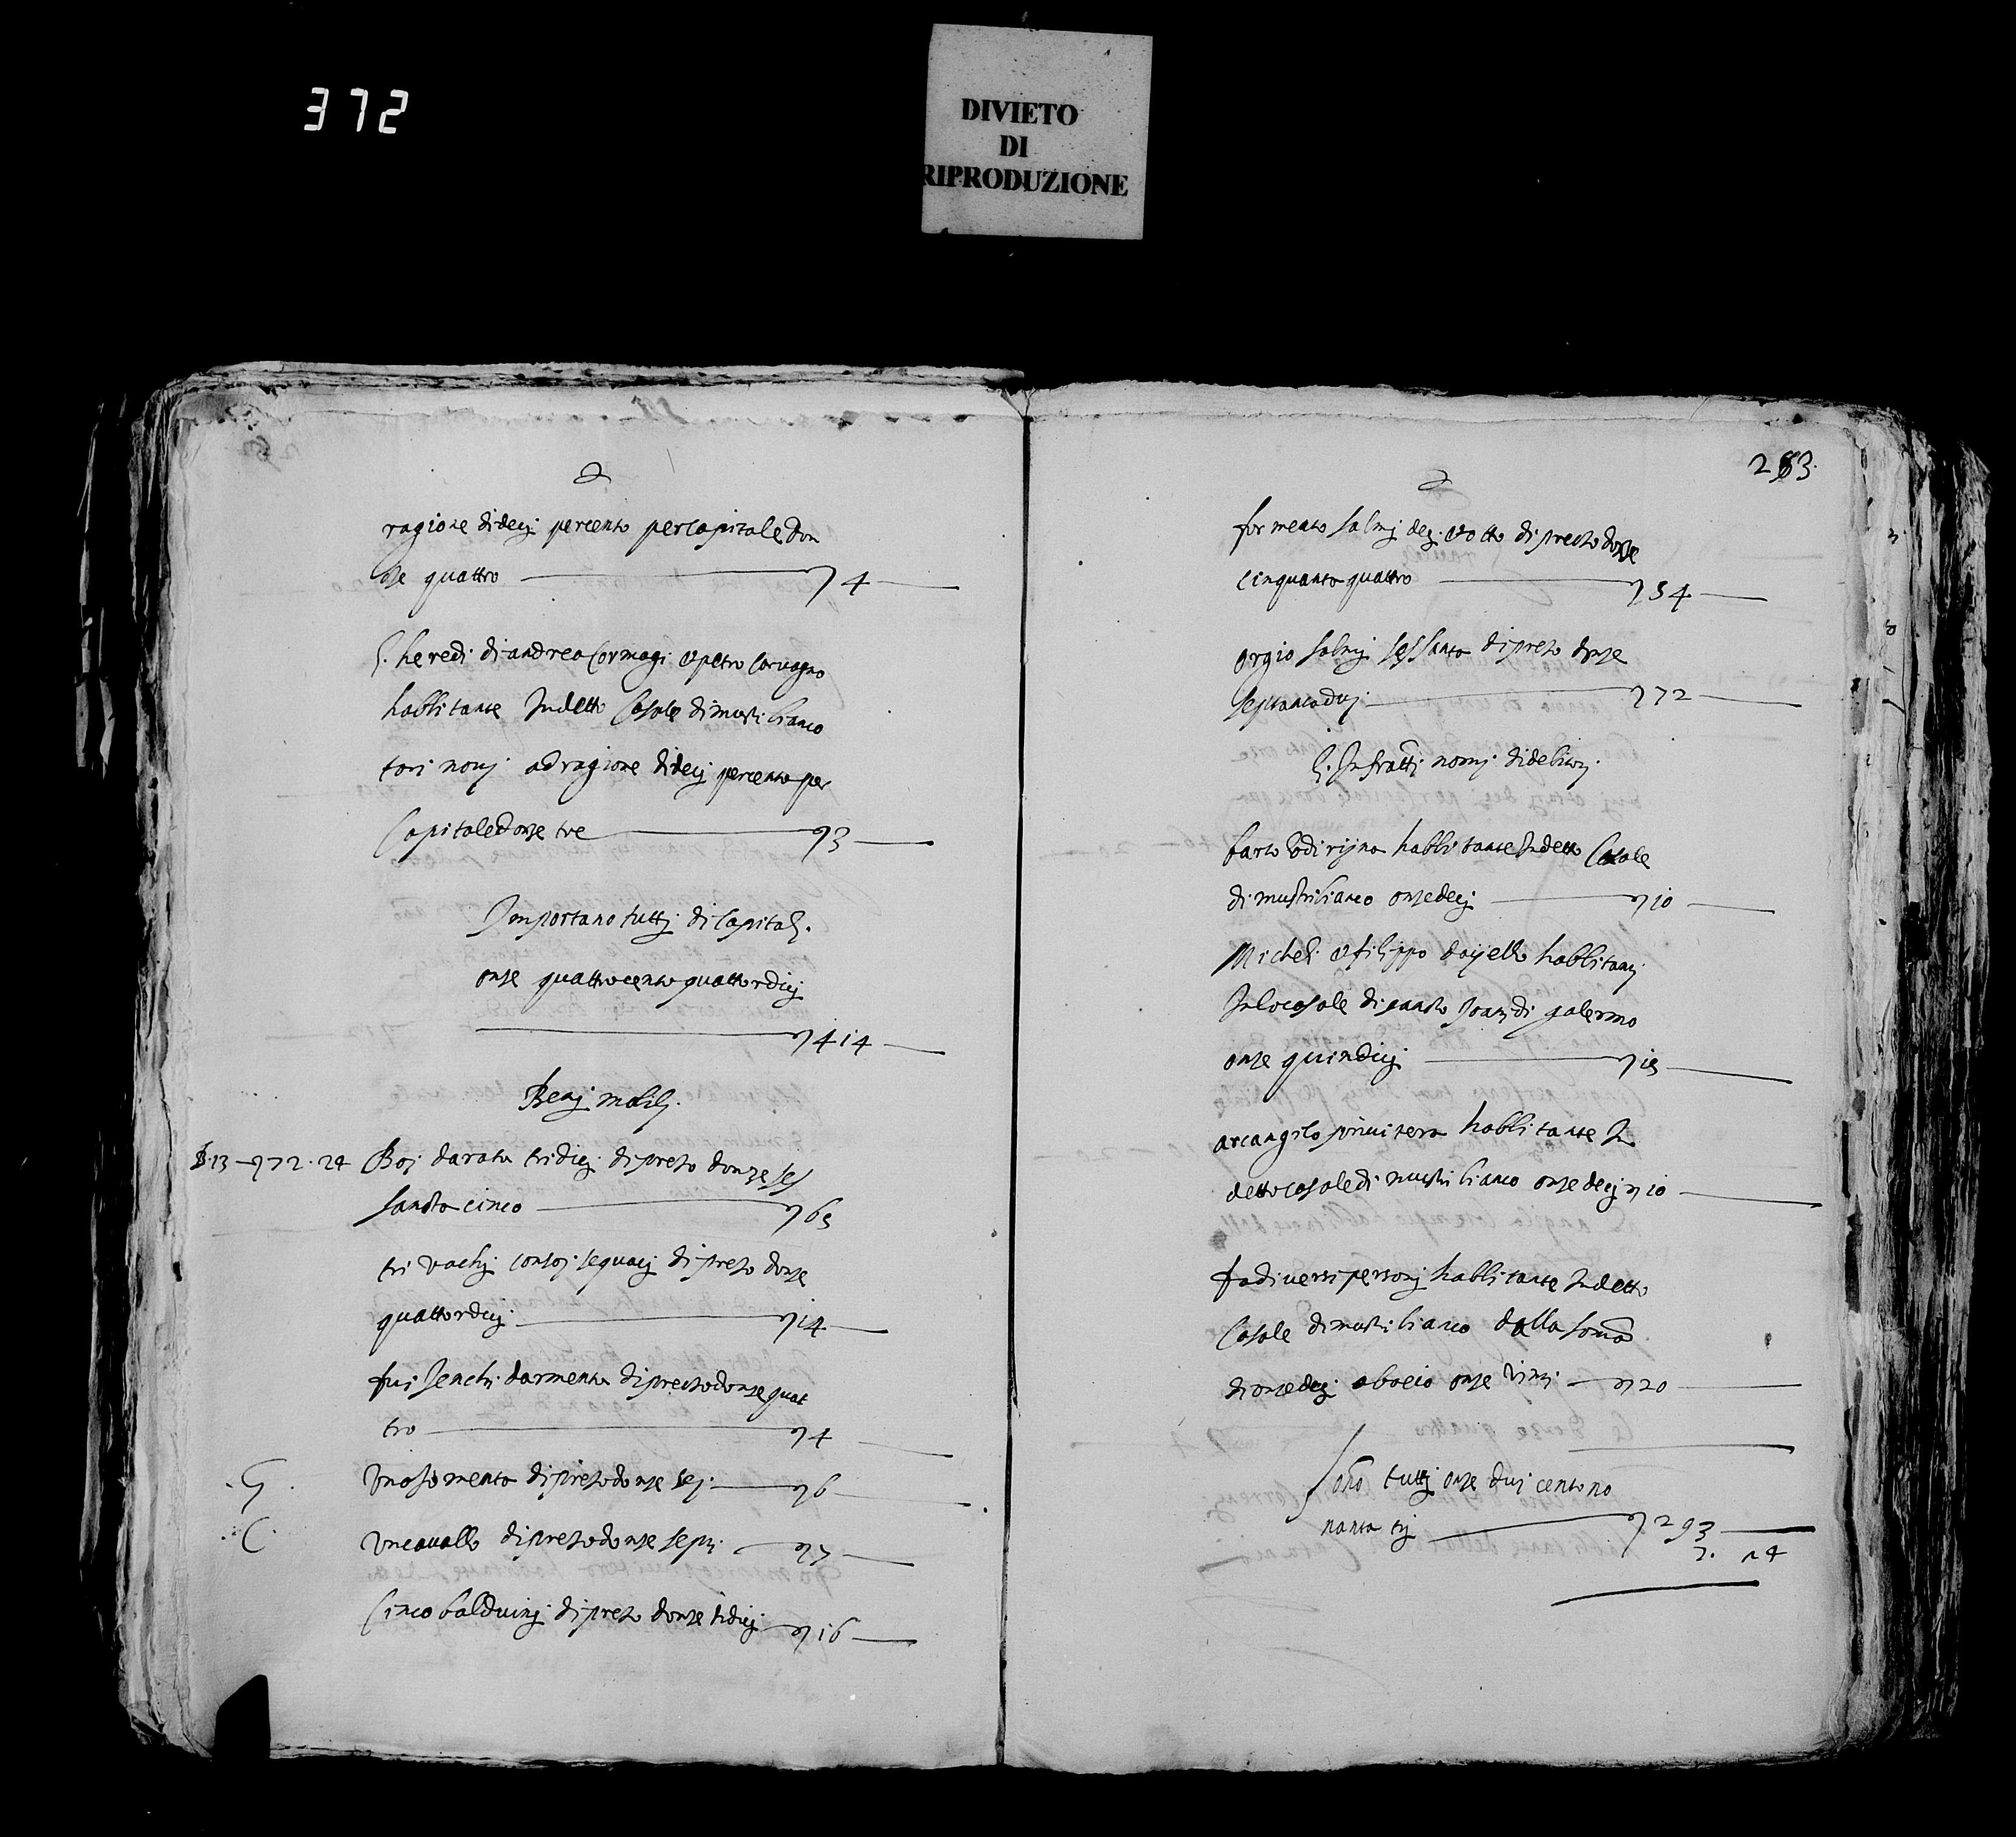 372
DIVIETO
DI
RIPRODUZIONE
ragione di decj percento per capitale don
ze quattro 4
heredi di andrea Cormagi e petro Carvagno
habbitante In detto Casale di mustilianco
tori novj ad ragione di decj percento per
Capitale donze tre 3
Importano tuttj di Capitalj
onze quattrocento quattordicj
414
Benj mobilj
B.13 72.24 Boj darata tridicj di prezo donze ses
santa cinco 65
tri vachj con soj sequacj di prezo donze
quattordicj 14
dui Jenchi darmenta di prezo donze quat
tro 4
G. Una Jomenta di prezo donze sej 6
C. Un cavallo di prezo donze septi 7
Cinco balduinj di prezo donze sidicj 16
283
formento salmj decj otto di prezo donze
cinquanta quattro 54
orgio salmj sessanta di prezo donze
septanta duj 72
Infratti nomj di debitorj
barto di rijna habbitante In detto Casale
di mustilianco onze decj 10
Micheli e filippo habbitanj
In lo casale di santo Joanj di galermo
onze quindicj 15
arcangilo primitera habbitante In
detto casale di mustilianco onze decj 10
da diversi personj habbitante In detto
Casale di mustilianco dalla soma
di onze decj a bacio onze vinti 20
Sono tuttj onze dui cento no
nanta trj 293
14